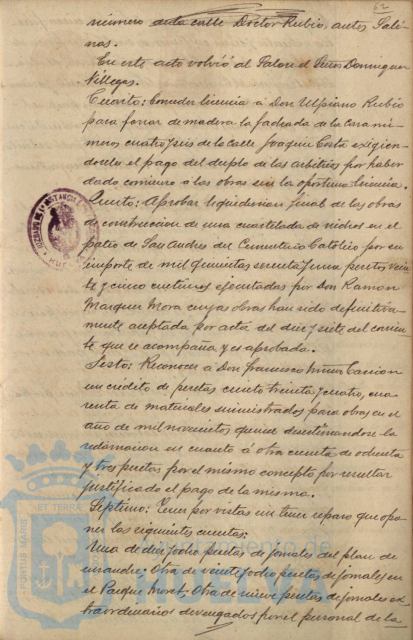 62
número de la calle Doctor Rubio, antes Sali-
nas.
En este acto volvió al Salon el Señor Dominguez
Villegas.
Cuarto: Conceder licencia á Don Ulpiano Rubio
para forrar de madera la fachada de la casa nú-
meros cuatro y seis de la calle Joaquin Costa exigien-
dosele el pago del duplo de los arbitrios por haber
dado comienzo á las obras sin la oportuna licencia.
Quinto: Aprobar liquidacion final de las obras
de construccion de una cuartelada de nichos en el
patio de San Andrés del Cementerio Católico por su
importe de mil quinientas sesenta y una pesetas vein-
te y cinco centimos ejecutadas por Don Ramon
Marquez Mora cuyas obras han sido definitiva-
mente aceptadas por acta del diez y siete del corrien-
te que se acompaña y es aprobada.
Sesto: Reconocer á Don Francisco Nuñez Carrion
un crédito de pesetas ciento treinta y cuatro, cua-
renta de materiales suministrados para obras en el
año de mil novecientos quince desestimandose la
reclamacion en cuanto á otra cuenta de ochenta
y tres pesetas por el mismo concepto por resultar
justificado el pago de la misma.
Septimo: Tener por vistas sin tener reparo que opo-
ner las siguientes cuentas:
Una de diez y ocho pesetas de jornales del plan de
ensanche: Otra de veinte y ocho pesetas de jornales en
el Parque Moret: Otra de nueve pesetas de jornales ex-
traordinarios devengados por el personal de la
PORTUS MARIS ET TERRÆ